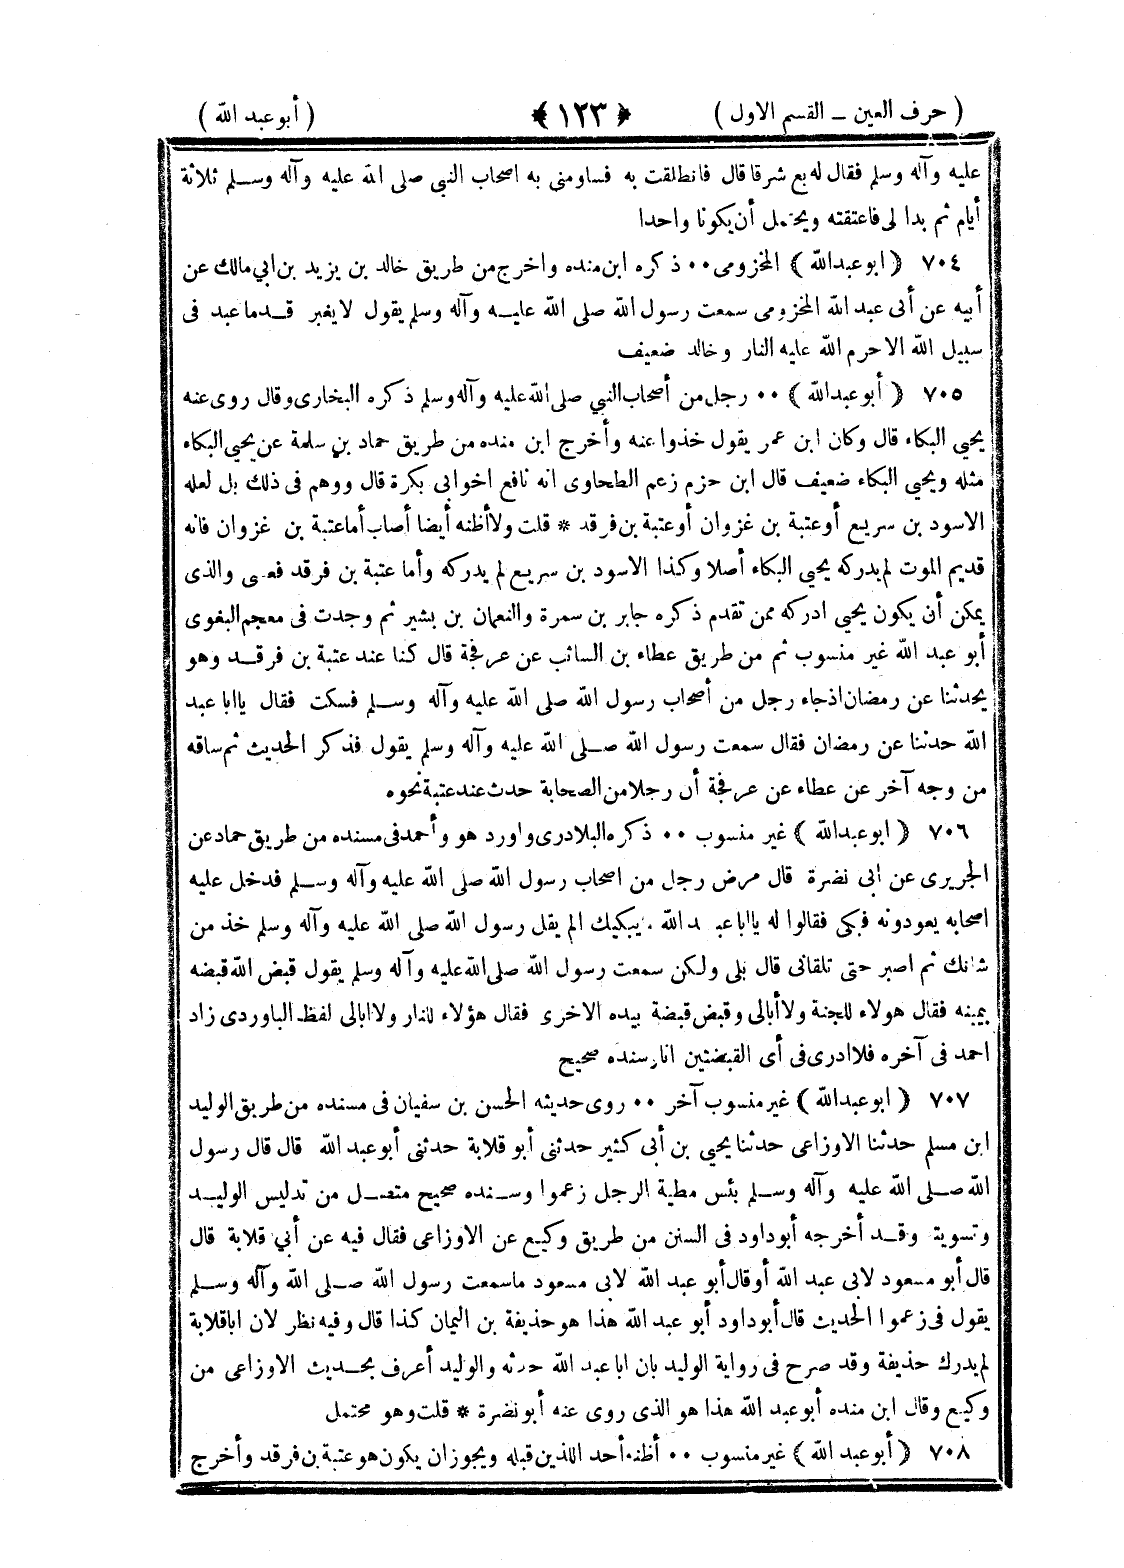 ( حرف العين ــ القسم الاول ) ﴿ ١٢٣ ﴾ ( أبو عبد الله )
عليه وآله وسلم فقال له بع شرقا قال فانطلقت به فساومني به اصحاب النبي صلى الله عليه وآله وسلم ثلاثة
أيام ثم بدا لى فاعتقته ويحتمل أن يكونا واحدا
٧٠٤ ( ابو عبدالله ) المخزومى ٠٠ ذكره ابن منده واخرج من طريق خالد بن يزيد بن ابي مالك عن
أبيه عن أبى عبد الله المخزومى سمعت رسول الله صلى الله عليه وآله وسلم يقول لا يغبر قدما عبد فى
سبيل الله الا حرم الله عليه النار وخالد ضعيف
٧٠٥ ( أبو عبدالله ) ٠٠ رجل من أصحاب النبي صلى الله عليه وآله وسلم ذكره البخارى وقال روى عنه
يحيى البكاء قال وكان ابن عمر يقول خذوا عنه وأخرج ابن منده من طريق حماد بن سلمة عن يحيى البكاء
مثله ويحيى البكاء ضعيف قال ابن حزم زعم الطحاوى انه نافع اخو ابى بكرة قال ووهم فى ذلك بل لعله
الاسود بن سريع أو عتبة بن غزوان أو عتبة بن فرقد * قلت ولا أظنه أيضا أصاب أما عتبة بن غزوان فانه
قديم الموت لم يدركه يحيى البكاء أصلا وكذا الاسود بن سريع لم يدركه وأما عتبة بن فرقد فعسى والذى
يمكن أن يكون يحيى ادركه ممن تقدم ذكره جابر بن سمرة والنعمان بن بشير ثم وجدت فى معجم البغوى
أبو عبد الله غير منسوب ثم من طريق عطاء بن السائب عن عرفجة قال كنا عند عتبة بن فرقد وهو
يحدثنا عن رمضان اذ جاء رجل من أصحاب رسول الله صلى الله عليه وآله وسلم فسكت فقال يا ابا عبد
الله حدثنا عن رمضان فقال سمعت رسول الله صلى الله عليه وآله وسلم يقول فذكر الحديث ثم ساقه
من وجه آخر عن عطاء عن عرفجة أن رجلا من الصحابة حدث عند عتبة نحوه
٧٠٦ ( ابو عبدالله ) غير منسوب ٠٠ ذكره البلادرى واورد هو وأحمد فى مسنده من طريق حماد عن
الجريرى عن ابى نضرة قال مرض رجل من اصحاب رسول الله صلى الله عليه وآله وسلم فدخل عليه
اصحابه يعودونه فبكى فقالوا له يا ابا عبد الله يبكيك الم يقل رسول الله صلى الله عليه وآله وسلم خذ من
شانك ثم اصبر حتى تلقانى قال بلى ولكن سمعت رسول الله صلى الله عليه وآله وسلم يقول قبض الله قبضه
بيمينه فقال هولاء للجنة ولا أبالى وقبض قبضة بيده الاخرى فقال هؤلاء للنار ولا ابالى لفظ الباوردى زاد
احمد فى آخره فلا ادرى فى أى القبضتين انا وسنده صحيح
٧٠٧ ( ابو عبدالله ) غير منسوب آخر ٠٠ روى حديثه الحسن بن سفيان فى مسنده من طريق الوليد
ابن مسلم حدثنا الاوزاعى حدثنا يحيى بن أبى كثير حدثنى أبو قلابة حدثنى أبو عبد الله قال قال رسول
الله صلى الله عليه وآله وسلم بئس مطية الرجل زعموا وسنده صحيح متصل من تدليس الوليد
وتسوية وقد أخرجه أبو داود فى السنن من طريق وكيع عن الاوزاعى فقال فيه عن أبي قلابة قال
قال أبو مسعود لابى عبد الله أو قال أبو عبد الله لابى مسعود ما سمعت رسول الله صلى الله وآله وسلم
يقول فى زعموا الحديث قال أبو داود أبو عبد الله هذا هو حذيفة بن اليمان كذا قال وفيه نظر لان ابا قلابة
لم يدرك حذيفة وقد صرح فى رواية الوليد بان ابا عبد الله حدثه والوليد أعرف بحديث الاوزاعى من
وكيع وقال ابن منده أبو عبد الله هذا هو الذى روى عنه أبو نضرة * قلت وهو محتمل
٧٠٨ ( أبو عبد الله ) غير منسوب ٠٠ أظنه أحد اللذين قبله ويجوز ان يكون هو عتبة بن فرقد وأخرج